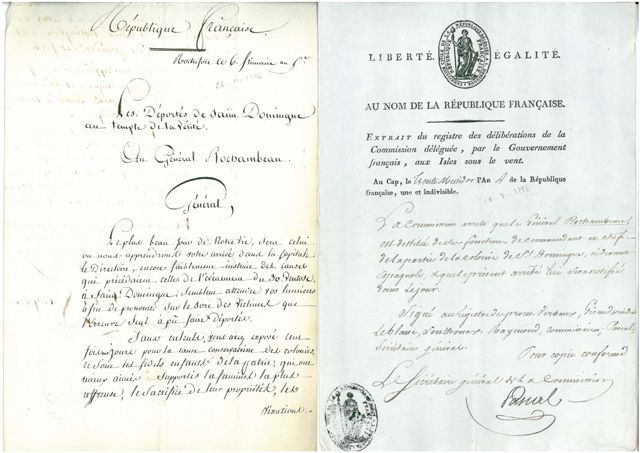 République française.
Rochefort le 6 frimaire an 5me
Les Déportés de Saint Domingue
au temple de la Vérité.
Au Général Rochambeau.
Général,
Le plus beau jour de Notre vie, sera celui
ou nous apprendrons votre arrivée dans la Capitale.
le Directoire, encore faiblement instruit des causes
qui précédaient celles de l'évènement du 30 Ventose
à Saint Domingue; semblent attendre vos lumières
afin de prononcer sur le sort des Victimes que
l'erreur seul à pû faire Déportés.
Sans reculs, vous avez exposé cent
fois vos jours pour la conservation des colonies,
le sont les fidels enfants de la Patrie; qui ont
mieux aimés supportés la famine la plus
affreuse, le sacrifice de leur propriétés, les
Vexations
LIBERTÉ. ÉGALITÉ.
AU NOM DE LA RÉPUBLIQUE FRANÇAISE.
EXTRAIT du registre des délibérations de la
Commission déléguée, par le Gouvernement
français, aux Isles sous le vent.
Au Cap, le trente Messidor l'An 4 de la République
française, une et indivisible.
18.7.1796
La Commission arrete que le Général Rochambeau
est destitué de la fonction de commandant en chef
de la partie de la colonie de St Domingue, cidevant
Espagnole, & que le présent arreté lui sera notifié
dans le jour.
Signé au registre des procès verbaux, Giraud,
Leblanc, Sonthonax, Raymond, commissaires, Pascal
Secrétaire général.
Pour copie conforme
Le Secrétaire général de la Commission
Pascal